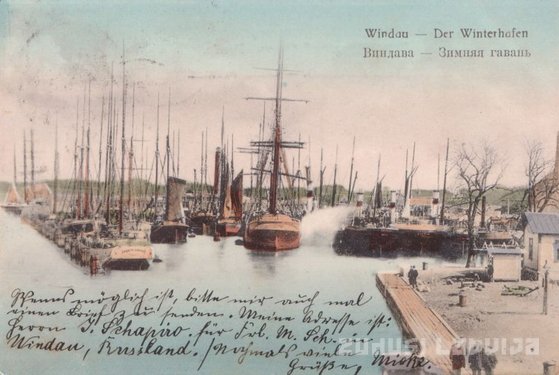 Windau — Der Winterhafen
Виндава — Зимняя гавань
Wenns möglich ist, bitte mir auch mal
einen Brief zu senden. Meine Adresse ist:
Herrn J. Schapiro für Frl. M. Sch. in
Windau, Russland. / Nochmals viel
Grüße,
zudusi Latvija